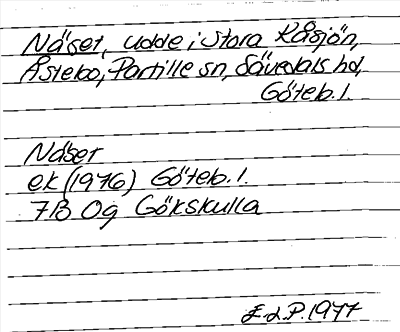 Näset, udde i Stora Kåsjön,
Åstebo, Partille sn, Sävedals hd,
Göteb. l.
Näser
ek (1976) Göteb. l.
7B 0g Gökskulla
E.d.P. 1977